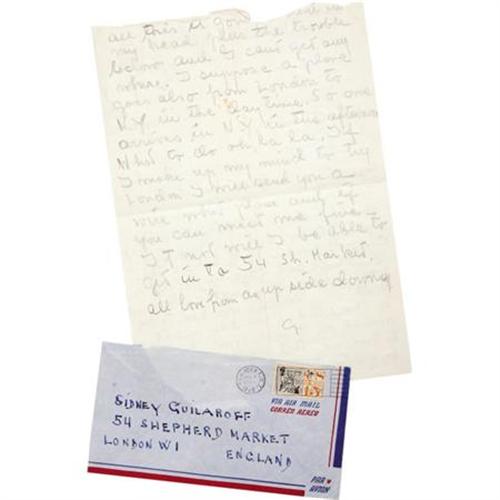 all this is going
my head plus the trouble
below and I can't get any
where. I suppose a plane
goes also from London to
N.Y. in the day time. So one
arrives in N.Y. in the afternoon
What to do oh la la. If
I make up my mind to try
London I will send you a
wire what plane and if
you can meet me fine
If not will I be able to
get into 54 Sh. Market.
all love from an up side downy
G.
VIA AIR MAIL
CORREO AEREO
SIDNEY GUILAROFF
54 SHEPHERD MARKET
LONDON W1
ENGLAND
PAR
AVION